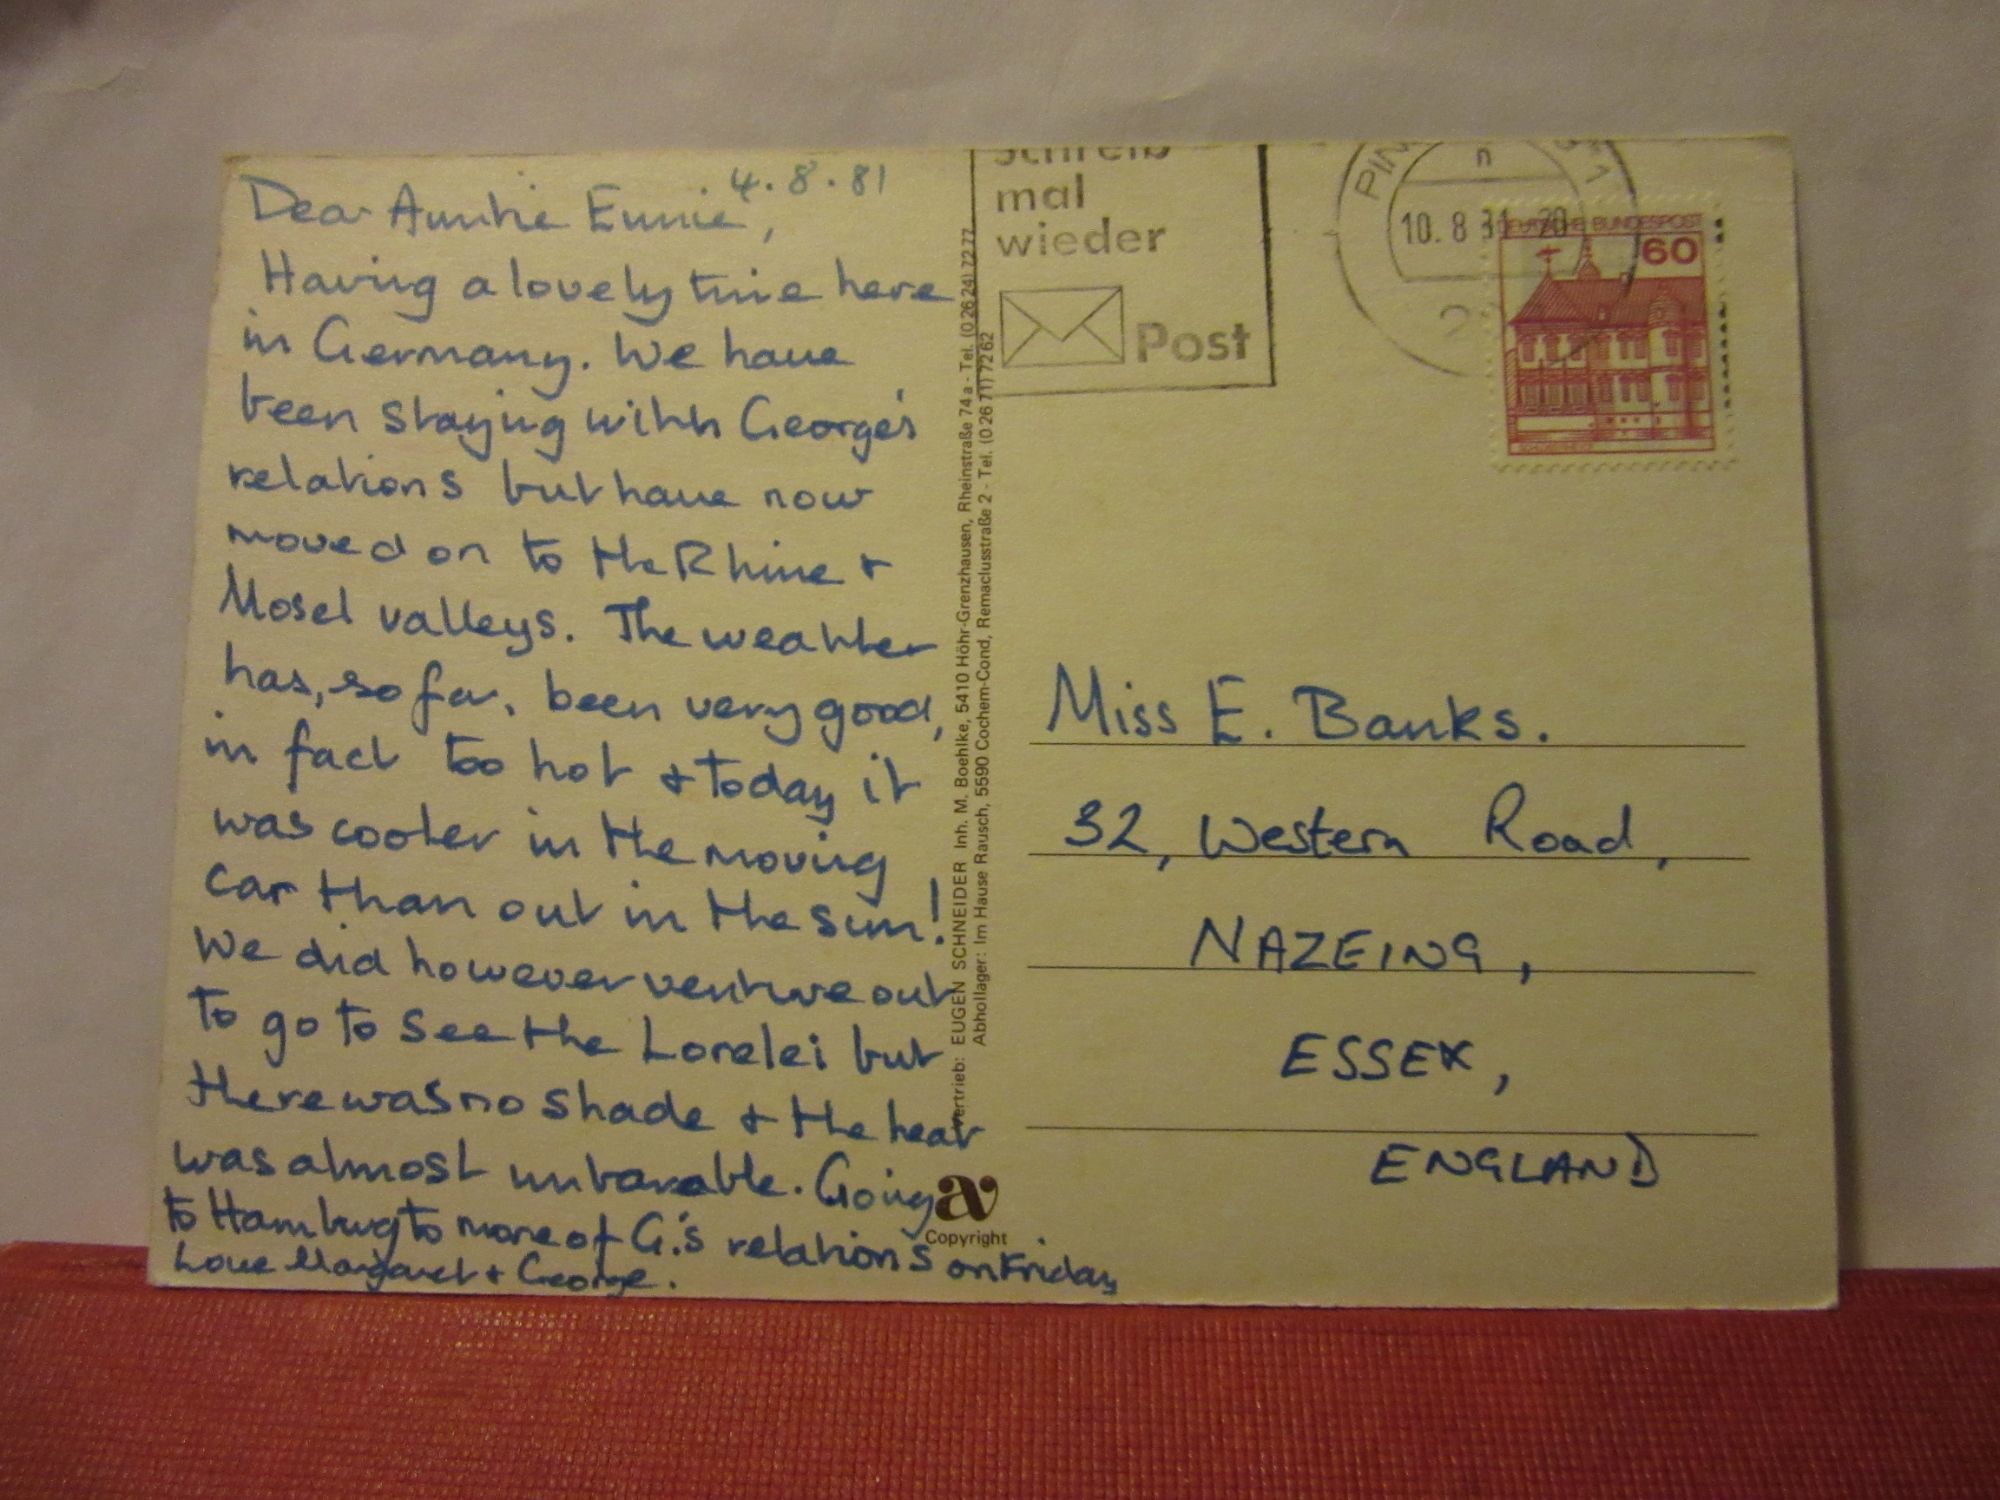 4.8.81
Dear Auntie Ennie,
Having a lovely time here
in Germany. We have
been staying with George's
relations but have now
moved on to the Rhine +
Mosel valleys. The weather
has, so far, been very good,
in fact too hot + today it
was cooler in the moving
car than out in the sun!
We did however venture out
to go to see the Lorelei but
there was no shade + the heat
was almost unbearable. Going
to Hamburg to more of G.'s relations on Friday
Love Margaret + George.
Vertrieb: EUGEN SCHNEIDER Inh. M. Boehlke, 5410 Höhr-Grenzhausen, Rheinstraße 74a - Tel. (02624) 7277
Abhollager: Im Hause Rausch, 5590 Cochem-Cond, Remaclusstraße 2 - Tel. (02671) 7262
av
Copyright
Schreib
mal
wieder
Post
PIN
n
10.8.81-20
DEUTSCHE BUNDESPOST
60
Miss E. Banks.
32, Western Road,
NAZEING,
ESSEX,
ENGLAND